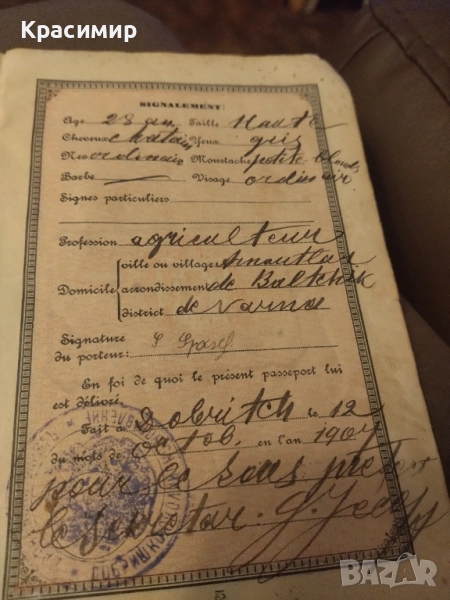 Красимир
SIGNALEMENT:
Age 28 ans Taille Haute
Cheveux chatain Yeux gris
Nes ordinair Moustache petite blonde
Barbe — Visage ordinair
Signes particuliers
Profession agriculteur
Domicile
ville ou village
arrondissement de Baltchik
district de Varna
Signature
du porteur:
En foi de quoi le présent passeport lui
est délivré.
Fait à Dobritch le 12
du mois de Octob. en l'an 1907
pour le sous préfet
le secretar.
BAZAR